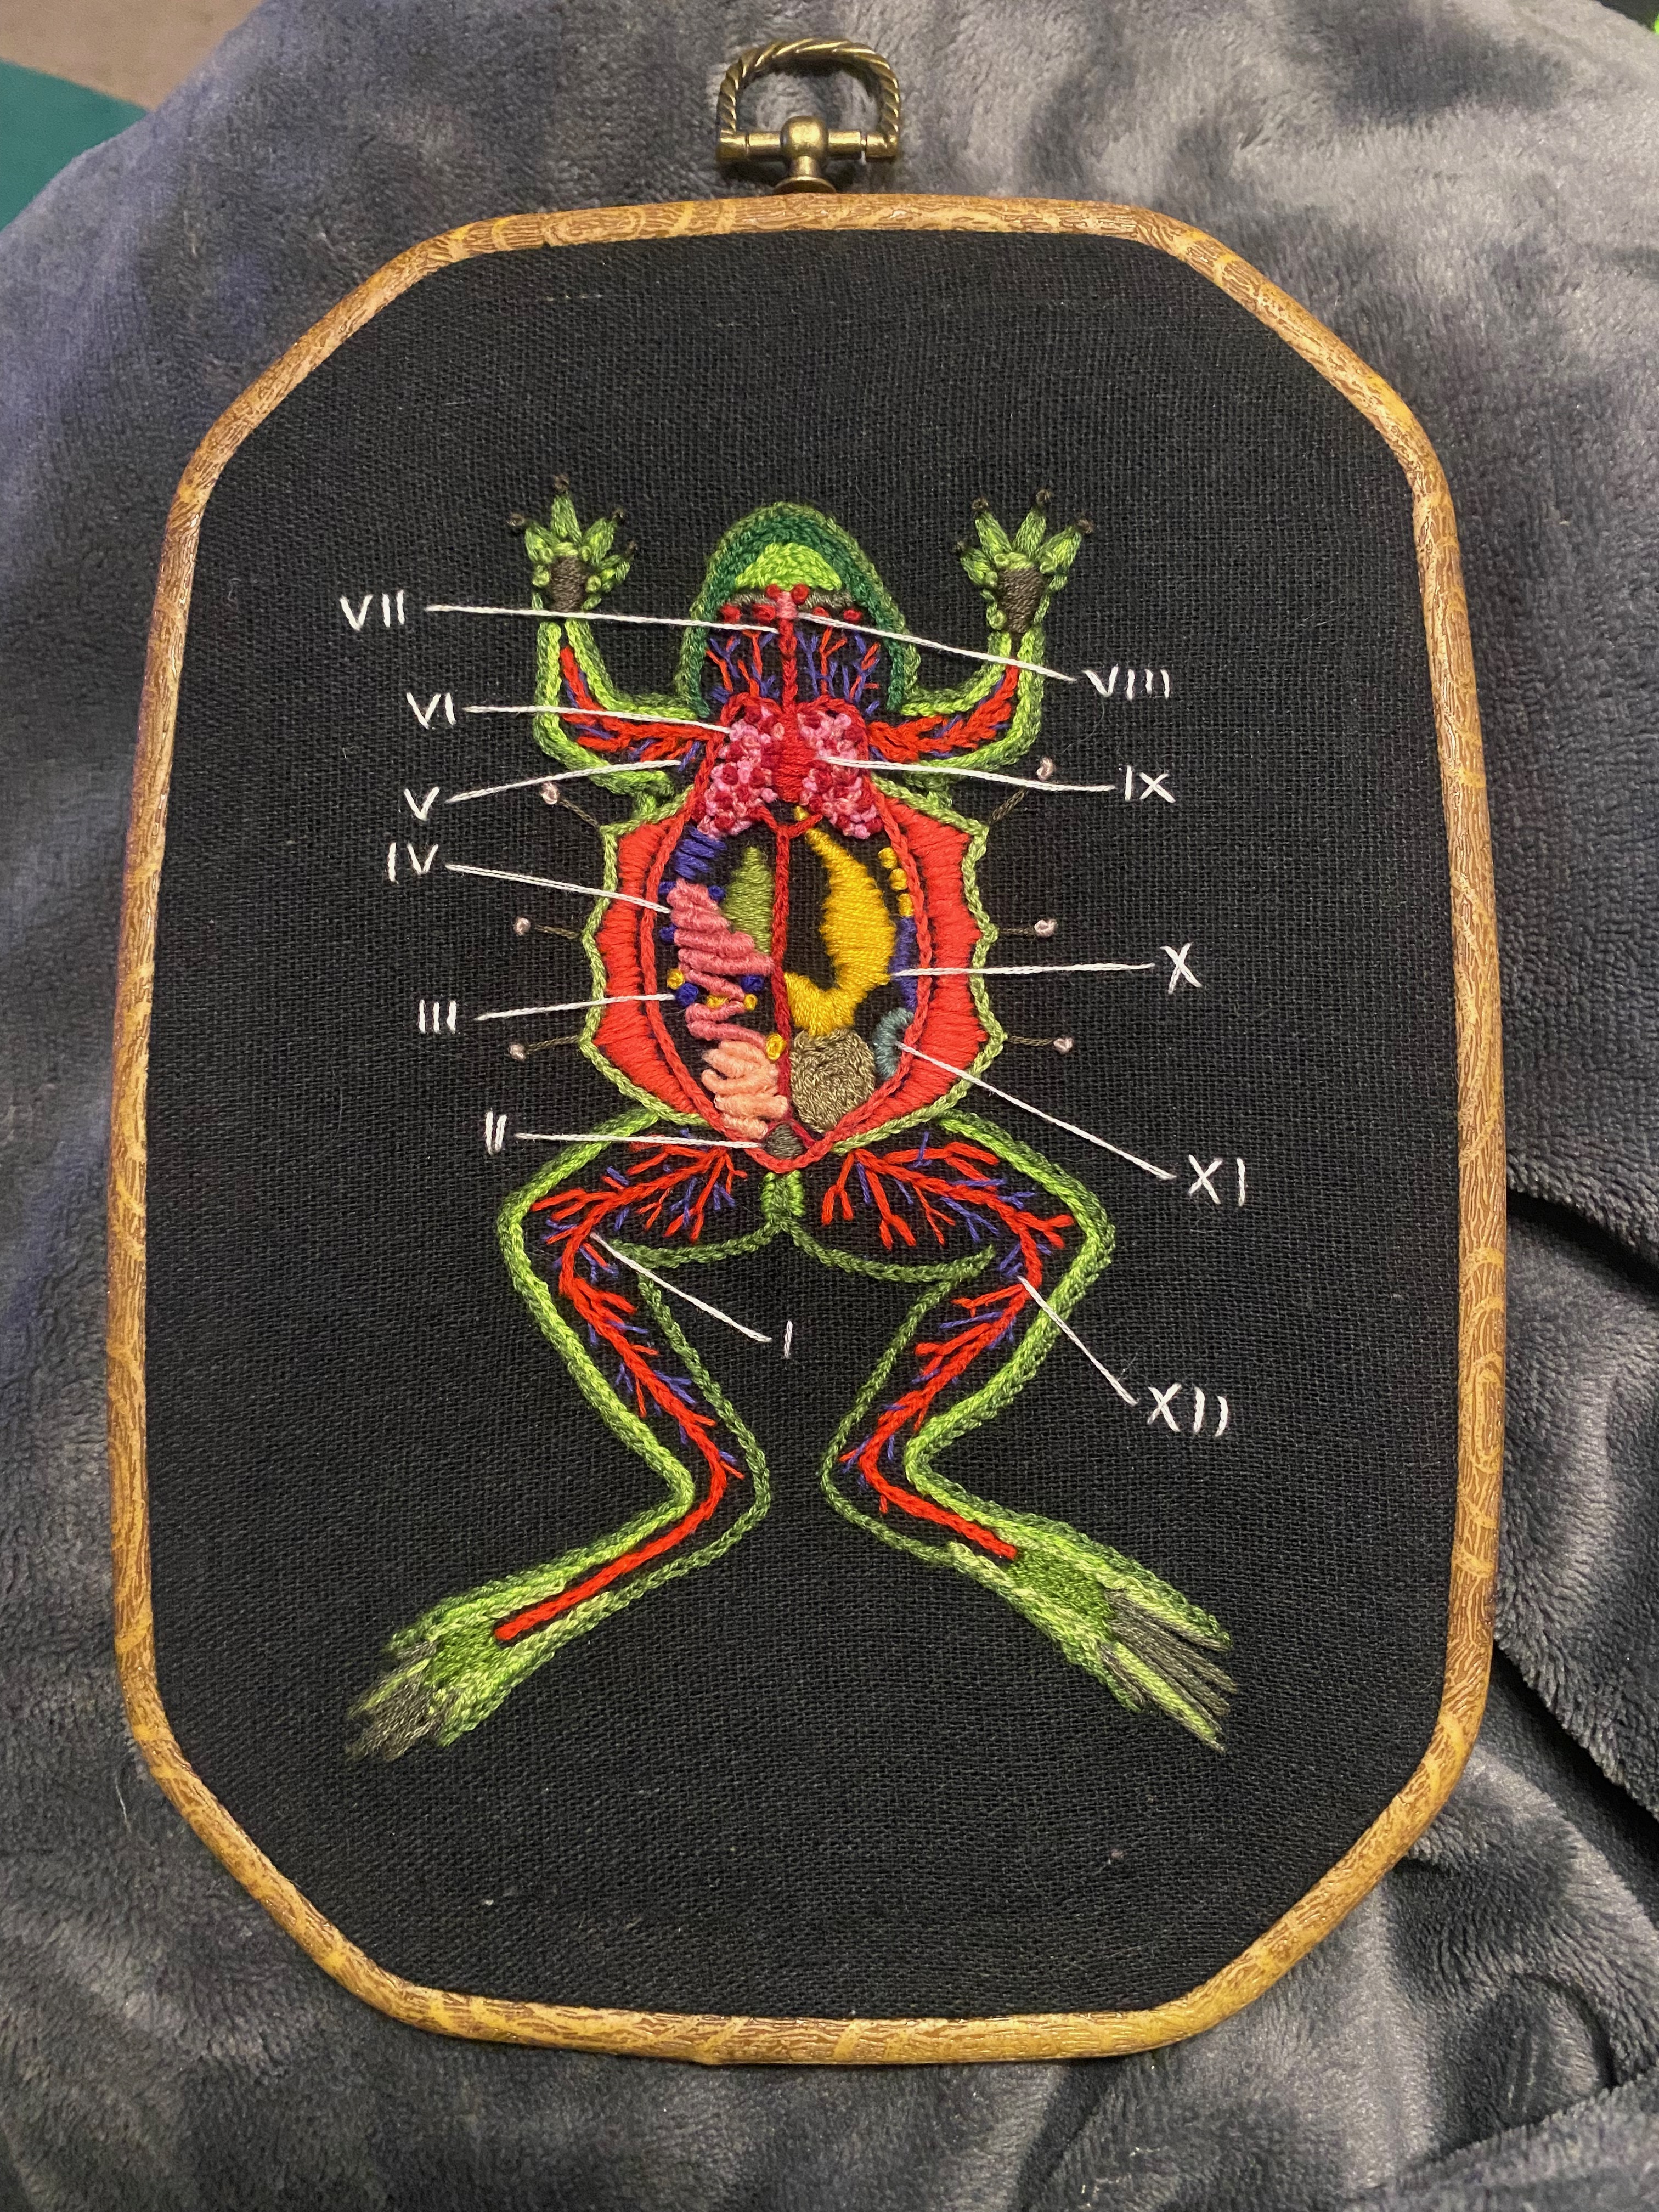 VII
VIII
VI
IX
V
IV
X
III
II
XI
I
XII